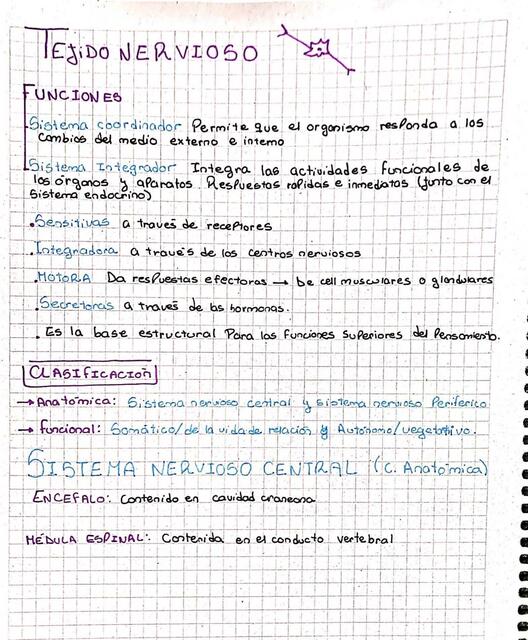 TEJIDO NERVIOSO
FUNCIONES
Sistema coordinador Permite que el organismo responda a los
cambios del medio externo e interno
Sistema Integrador Integra las actividades funcionales de
los órganos y aparatos. Respuestas rapidas e inmediatas (Junto con el
Sistema endocrino)
. Sensitivas a través de receptores
. Integradora a través de los centros nerviosos
. MOTORA Da respuestas efectoras → be cell musculares o glandulares
. Secretoras a través de las hormonas.
. Es la base estructural Para las funciones Superiores del Pensamiento.
CLASIFICACION
→ Anatómica: Sistema nervioso central y sistema nervioso Periferico
→ funcional: Somático/de la vida de relación y Autónomo/vegetativo.
SISTEMA NERVIOSO CENTRAL (C. Anatómica)
ENCEFALO: Contenido en cavidad craneana
MÉDULA ESPINAL: Contenida en el conducto vertebral